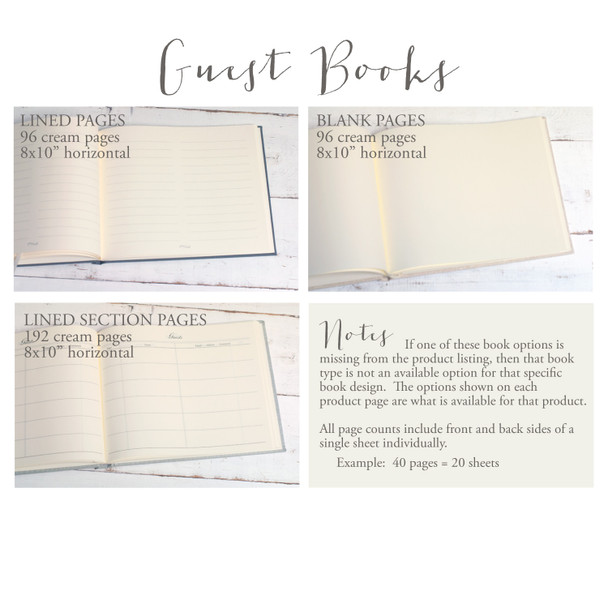 Guest Books
LINED PAGES
96 cream pages
8x10” horizontal
BLANK PAGES
96 cream pages
8x10” horizontal
LINED SECTION PAGES
192 cream pages
8x10” horizontal
Notes If one of these book options is
missing from the product listing, then that book
type is not an available option for that specific
book design. The options shown on each
product page are what is available for that product.
All page counts include front and back sides of a
single sheet individually.
Example: 40 pages = 20 sheets